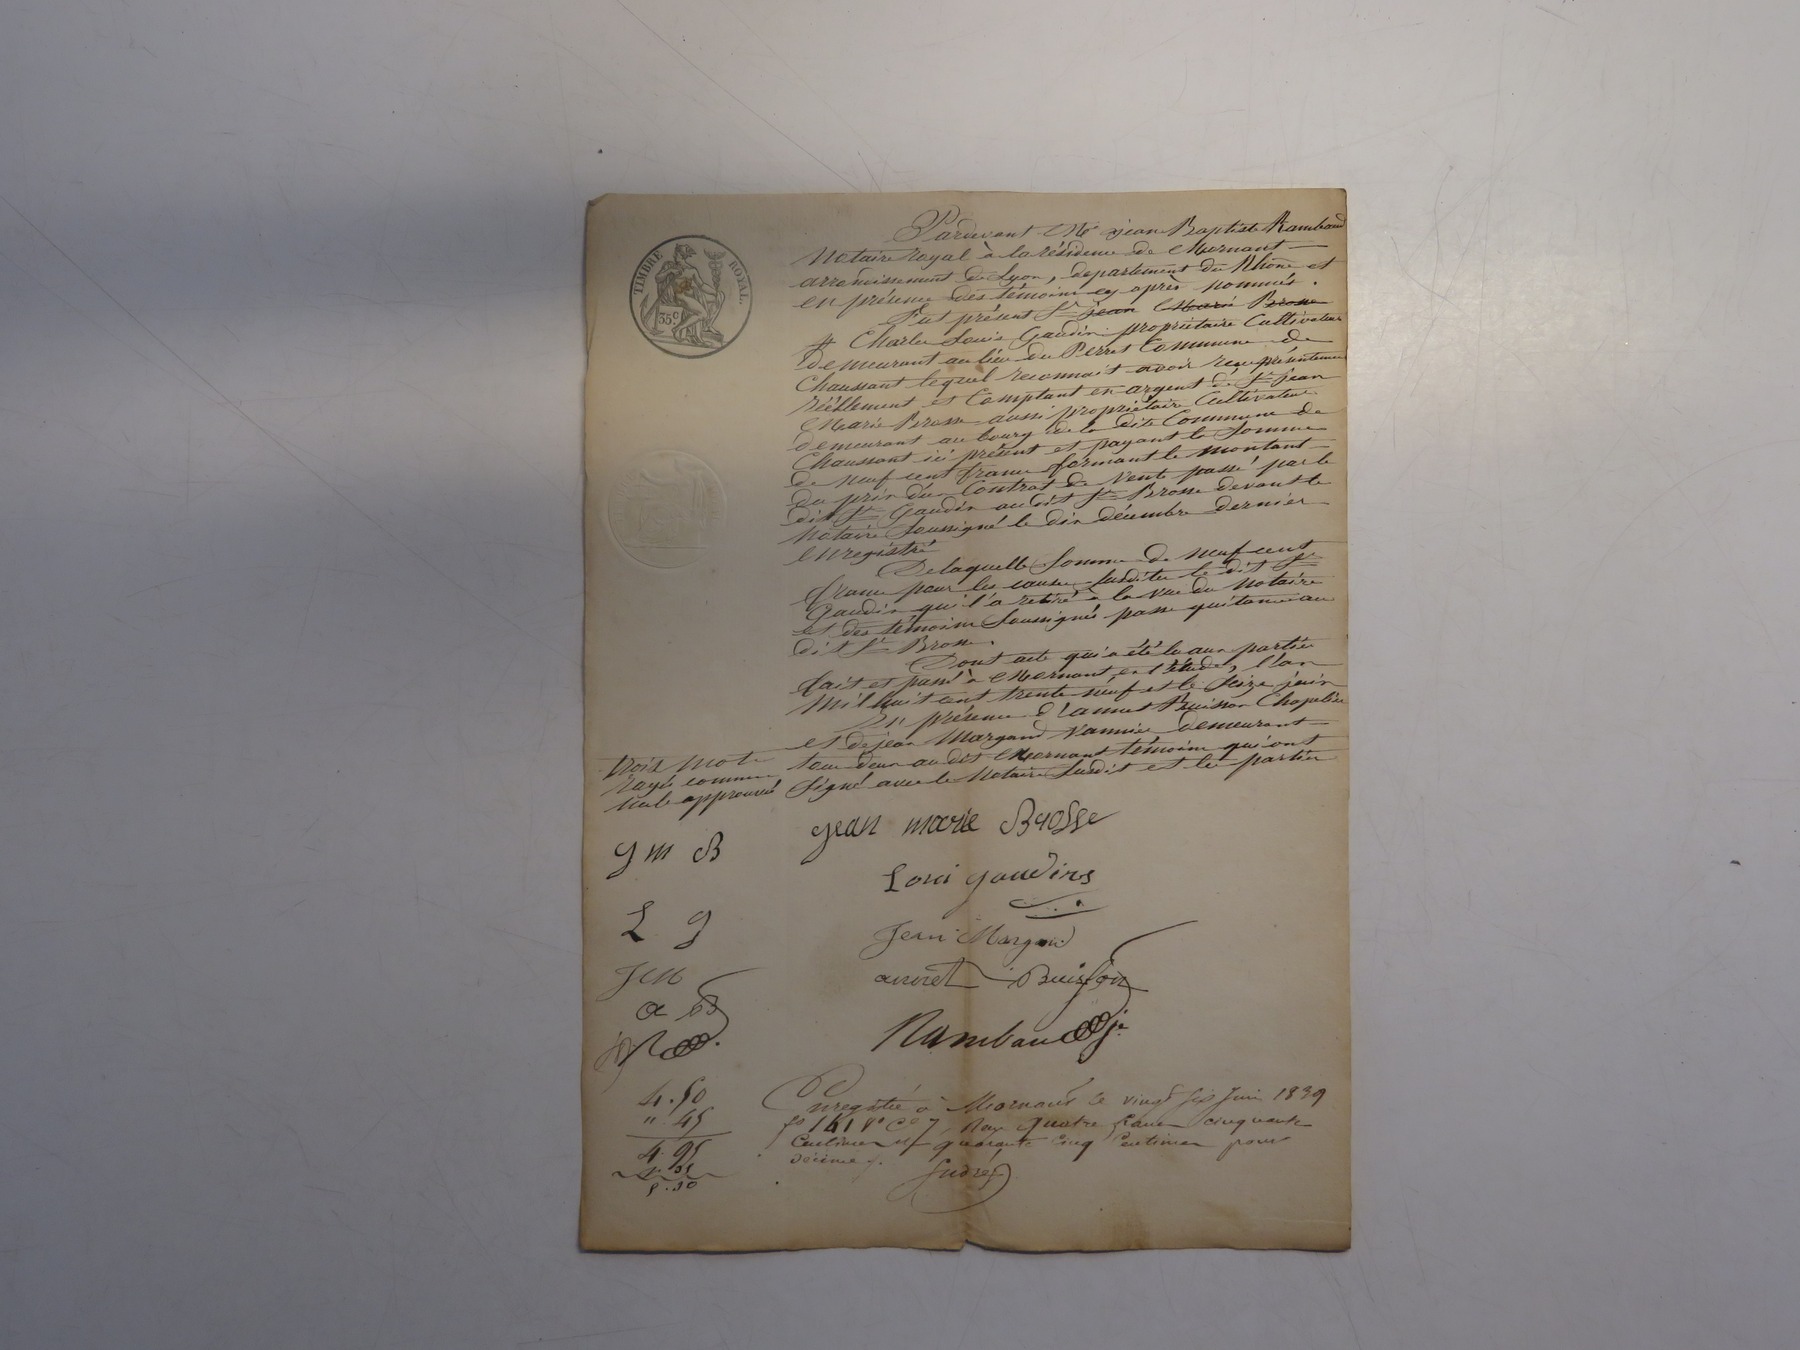 TIMBRE ROYAL.
35 c.
Pardevant Me jean Baptiste Rambaud
Notaire royal à la résidence de Mornant
arrondissement de Lyon, departement du Rhône et
en présence des témoins cy après nommés.
fut présent Sr jean Marie Brosse
# Charles Louis Gaudin propriétaire Cultivateur
demeurant au lieu du Perret Commune de
Chaussant lequel reconnait avoir reçu présentement
réellement et Comptant en argent de Sr jean
Marie Brosse aussi propriétaire Cultivateur
demeurant au bourg de la dite Commune de
Chaussant ici présent et payant la Somme
de neuf cent francs formant le montant
du prix du Contrat de Vente passé par le
dit Sr Gaudin au dit Sr Brosse devant le
Notaire Soussigné le dix décembre dernier
enregistré
De laquelle Somme de neuf cent
francs pour les causes Susdites le dit Sr
Gaudin qui l'a retiré à la vue du Notaire
et des témoins Soussignés passe quitance au
dit Sr Brosse.
Dont acte qui a été lu aux parties
fait et passé à Mornant, en l'étude, l'an
Mil huit cent trente neuf et le Seize juin
En présence d'annet Buisson Chapelier
et de jean Margand Vannier demeurant
tous deux au dit Mornant témoins qui ont
Signé avec le Notaire Susdit et les parties
trois mots
rayés comme
nuls approuvés
jean marie Brosse
j m B
Loui gaudins
L g
Jean Margand
J M
annet Buisson
a B
Rambaud je
4.50
" 45
4.95
5.30
Enregistré à Mornant le vingt six Juin 1839
fo 141 Vo Co 7, Reçu quatre francs cinquante
Centimes et quarante cinq Centimes pour
décime.
Sudré